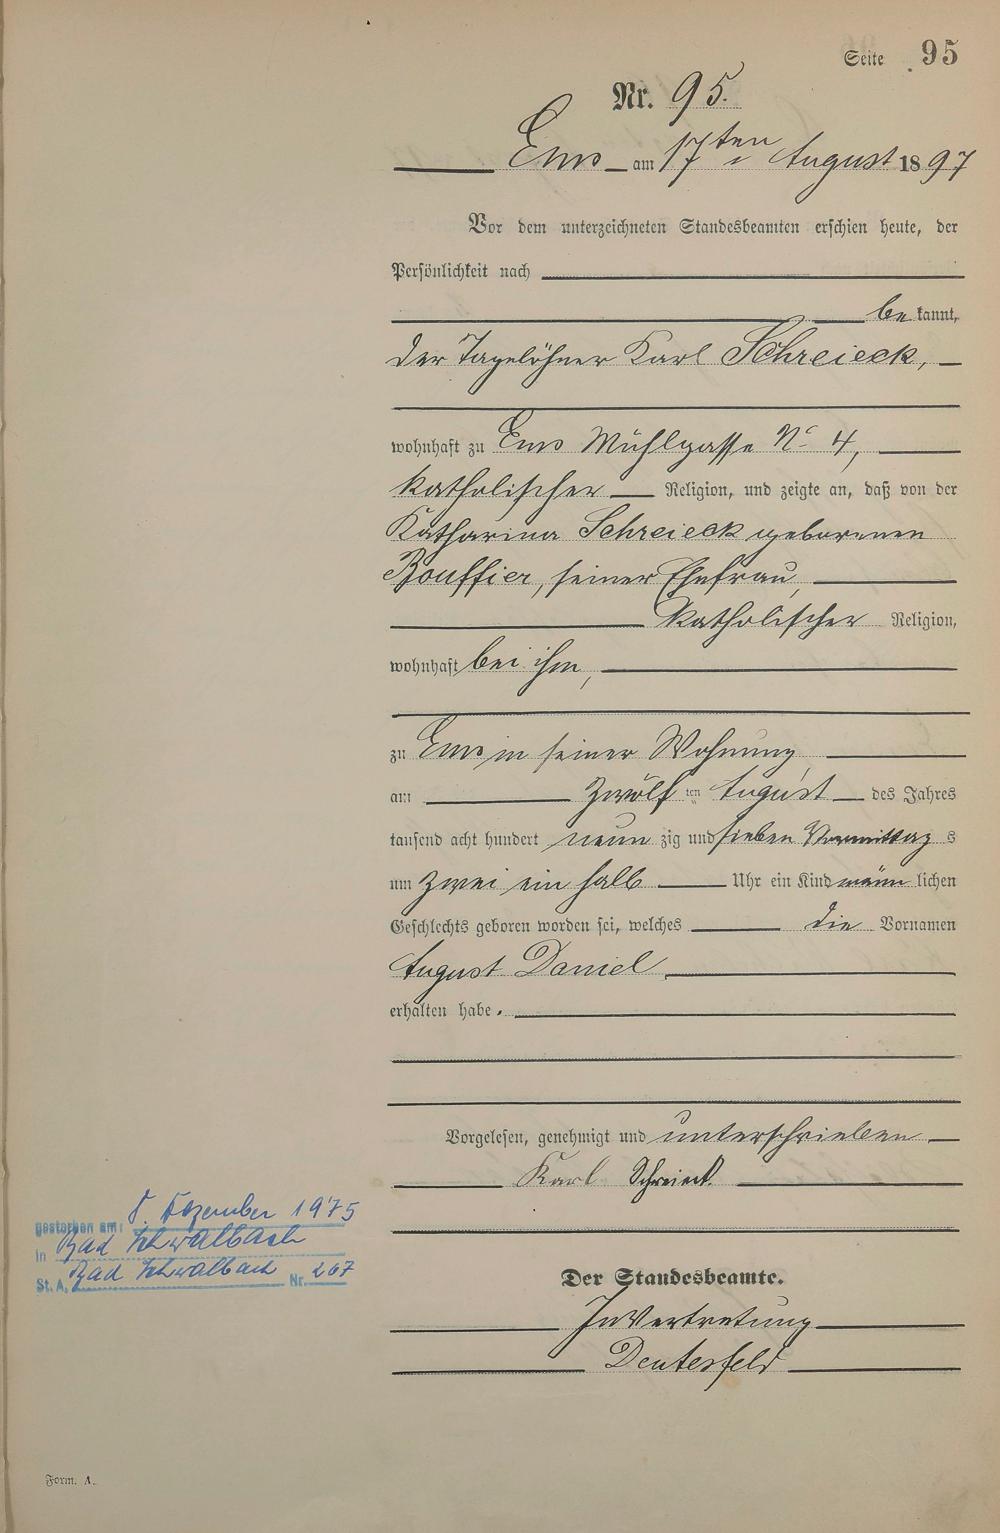 Seite 95
Nr. 95.
Ems am 17ten August 1897
Vor dem unterzeichneten Standesbeamten erschien heute, der
Persönlichkeit nach
bekannt,
der Tagelöhner Karl Schreieck,
wohnhaft zu Ems Mühlgasse No 4,
katholischer Religion, und zeigte an, daß von der
Katharina Schreieck geborenen
Bouffier, seiner Ehefrau,
katholischer Religion,
wohnhaft bei ihm,
zu Ems in seiner Wohnung
am zwölften August des Jahres
tausend acht hundert neunzig und sieben Vormittags
um zwei ein halb Uhr ein Kind männlichen
Geschlechts geboren worden sei, welches die Vornamen
August Daniel
erhalten habe.
Vorgelesen, genehmigt und unterschrieben
Karl Schreieck.
gestorben am: 8. Dezember 1975
in Bad Schwalbach
St. A. Bad Schwalbach Nr. 267
Der Standesbeamte.
In Vertretung
Deutesfeld
Form. A.